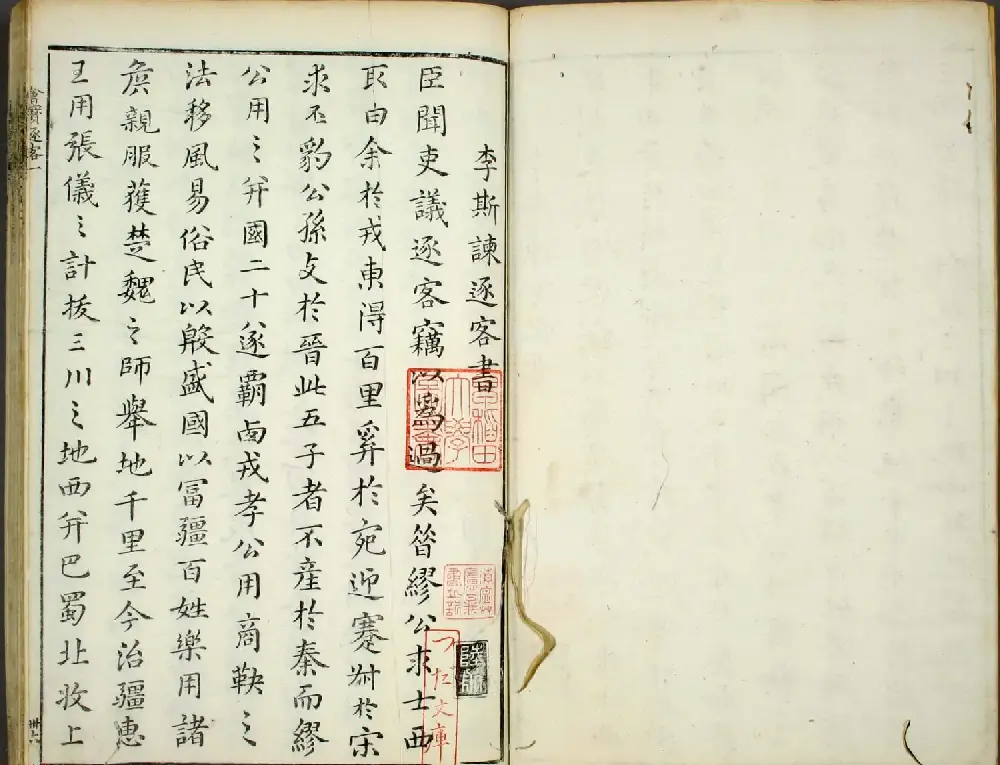 李斯諫逐客書
臣聞吏議逐客竊以爲過矣昔繆公求士西
取由余於戎東得百里奚於宛迎蹇叔於宋
求丕豹公孫支於晉此五子者不產於秦而繆
公用之并國二十遂霸西戎孝公用商鞅之
法移風易俗民以殷盛國以冨彊百姓樂用諸
矦親服獲楚魏之師舉地千里至今治彊惠
王用張儀之計拔三川之地西并巴蜀北收上
逐客一
早稻田大學
文庫